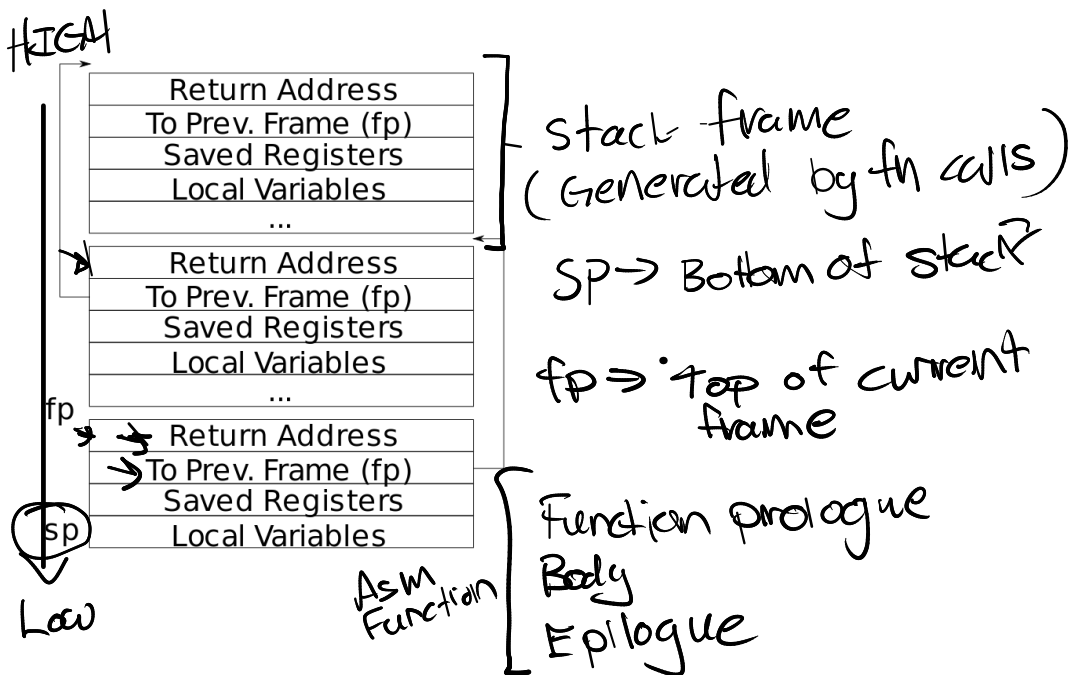 HIGH
Return Address
To Prev. Frame (fp)
Saved Registers
Local Variables
...
Return Address
To Prev. Frame (fp)
Saved Registers
Local Variables
...
fp
Return Address
To Prev. Frame (fp)
Saved Registers
sp
Local Variables
Low
Stack frame
(Generated by fn calls)
SP → Bottom of stack
fp ⇒ Top of current
frame
Asm
Function
Function prologue
Body
Epilogue